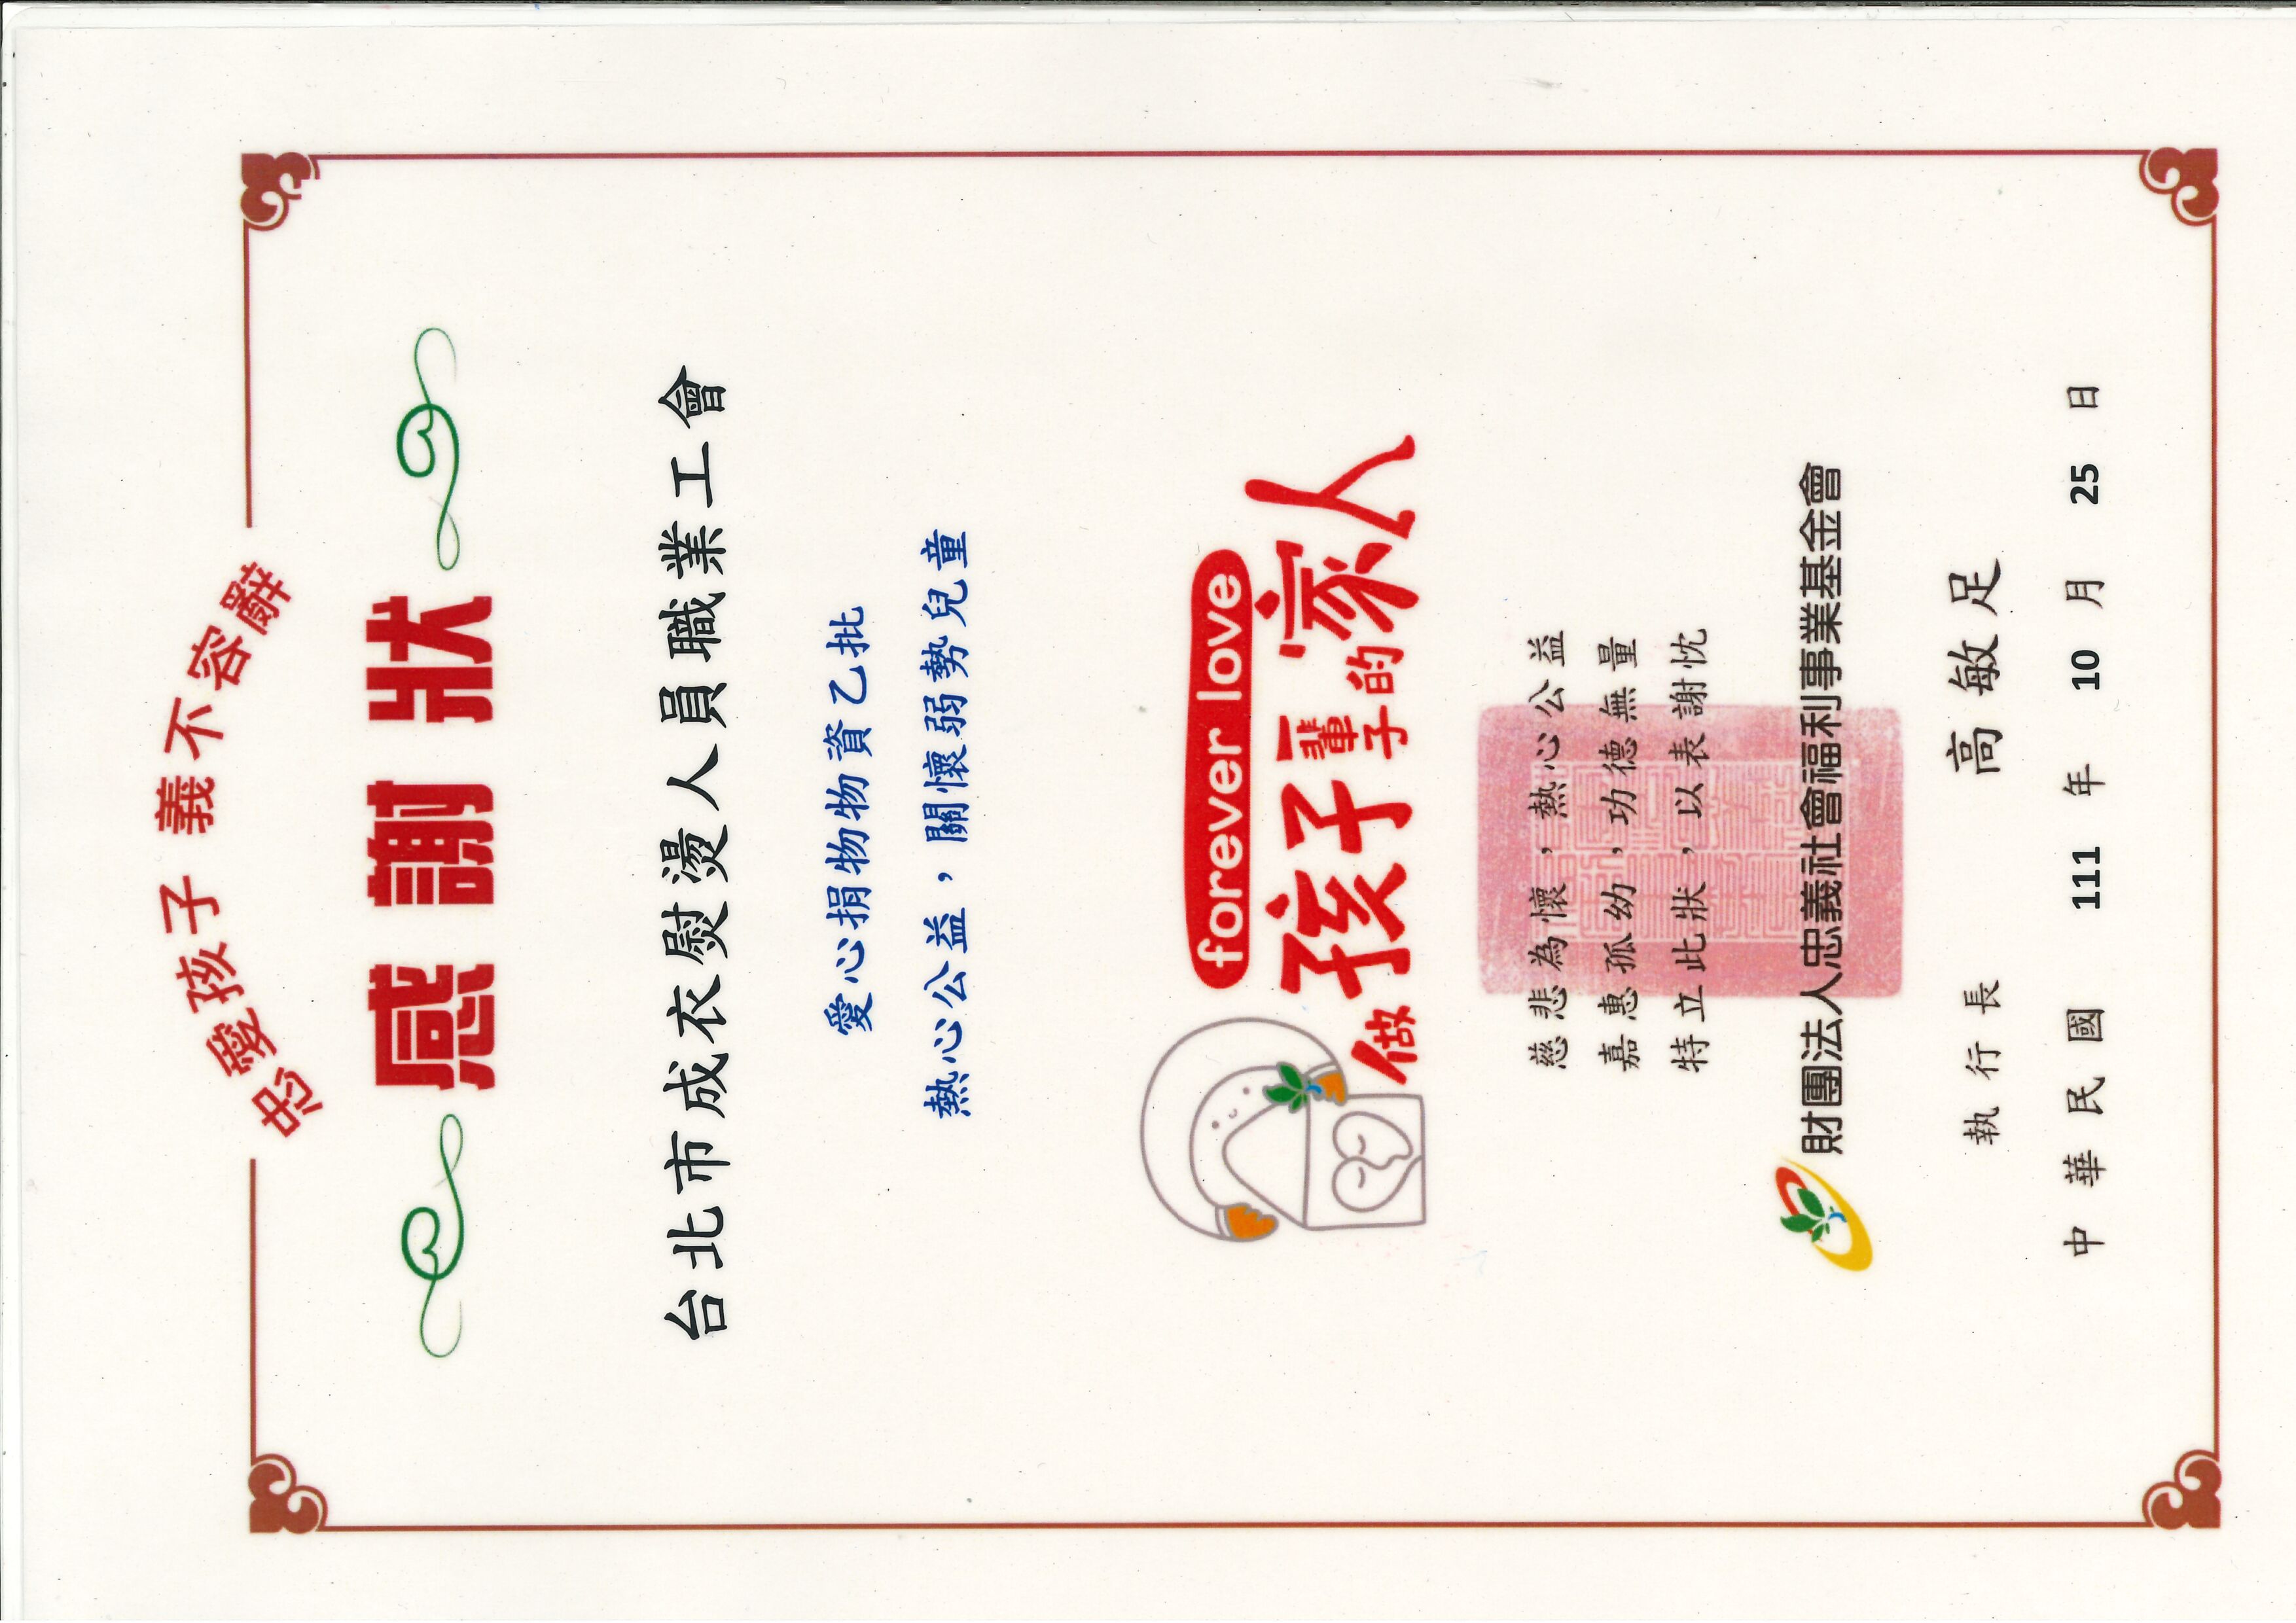 忠愛孩子 義不容辭
感謝狀
台北市成衣熨燙人員職業工會
愛心捐物物資乙批
熱心公益，關懷弱勢兒童
forever love
做孩子一輩子的家人
慈悲為懷，熱心公益
嘉惠孤幼，功德無量
特立此狀，以表謝忱
財團法人忠義社會福利事業基金會
執行長 高敏足
中華民國 111 年 10 月 25 日